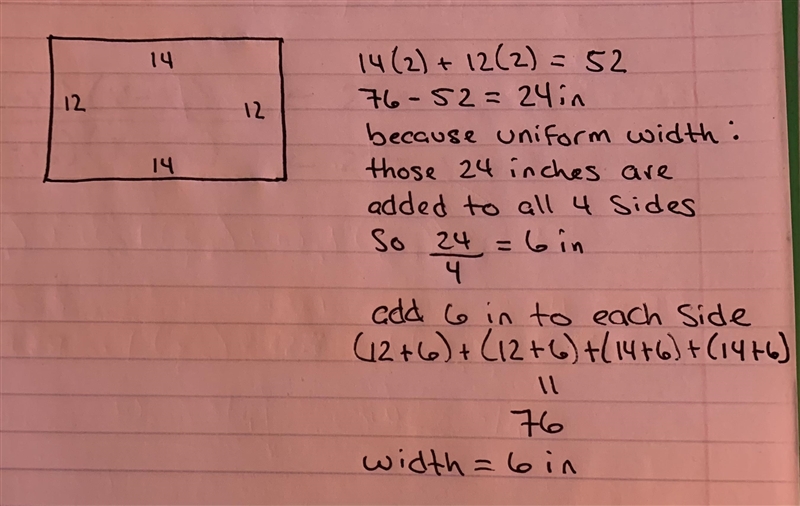 14
12
12
14
14(2) + 12(2) = 52
76 - 52 = 24in
because uniform width:
those 24 inches are
added to all 4 sides
So 24/4 = 6 in
add 6 in to each side
(12+6)+(12+6)+(14+6)+(14+6)
=
76
width = 6 in